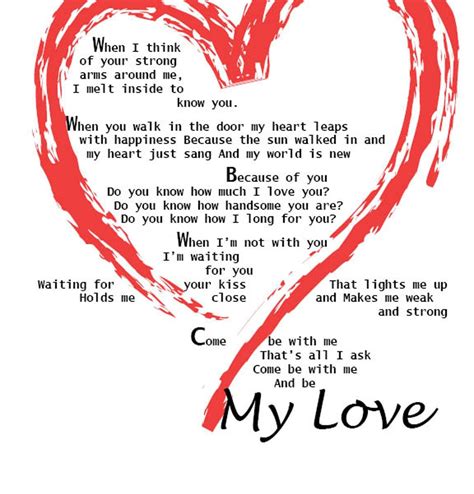 When I think
of your strong
arms around me,
I melt inside to
know you.
When you walk in the door my heart leaps
with happiness Because the sun walked in and
my heart just sang And my world is new
Because of you
Do you know how much I love you?
Do you know how handsome you are?
Do you know how I long for you?
When I'm not with you
I'm waiting
for you
Waiting for your kiss That lights me up
Holds me close and Makes me weak
and strong
Come be with me
That's all I ask
Come be with me
And be
My Love